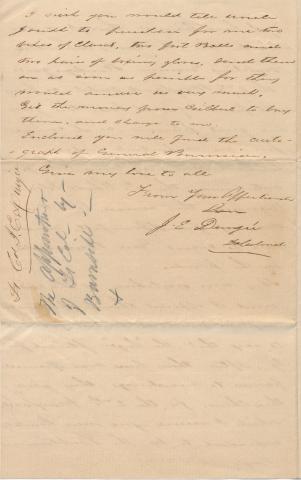 I wish you would tell uncle
Joseph to purchase for me two
sets of Clubs, two foot Balls and
two pair of boxing gloves, send them
on as soon as possible for they
would amuse us very much.
Get the money from to buy
them, and charge to me.
Enclosed you will find the auto-
graph of General Burnside.
Give my love to all
From Your Affectionate
Son
J. E.
Lt Col
The
of Lt Col by
Burnside